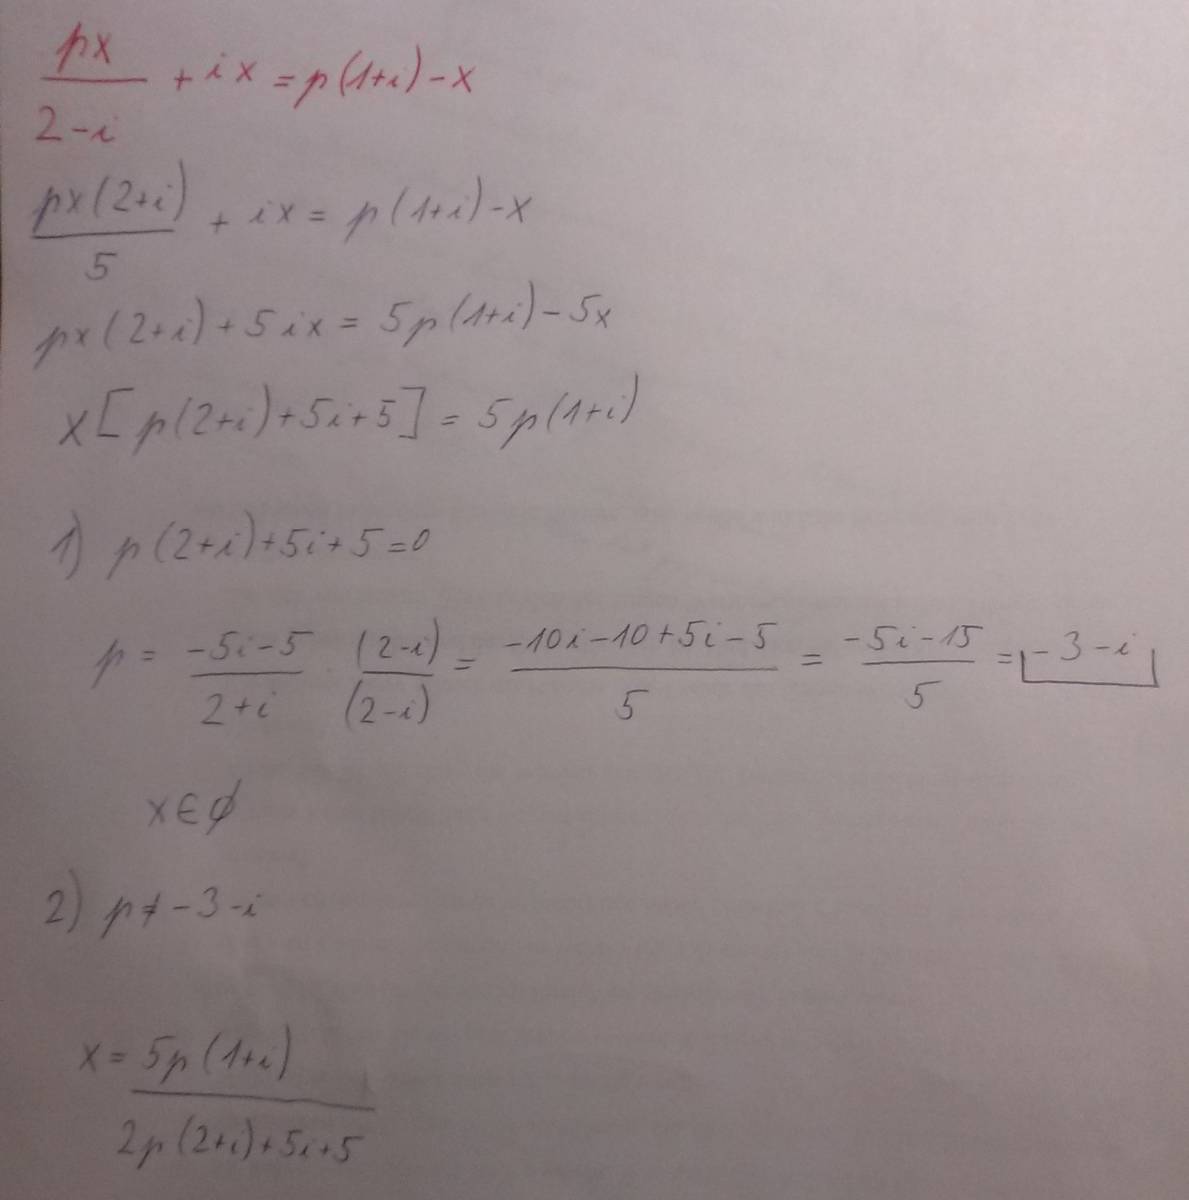 px/(2-i) + ix = p(1+i) - x
px(2+i)/5 + ix = p(1+i) - x
px(2+i) + 5ix = 5p(1+i) - 5x
x[p(2+i) + 5i + 5] = 5p(1+i)
1) p(2+i) + 5i + 5 = 0
p = (-5i-5)/(2+i) (2-i)/(2-i) = (-10i-10+5i-5)/5 = (-5i-15)/5 = -3-i
x ∈ ∅
2) p ≠ -3-i
x = 5p(1+i)/(2p(2+i)+5i+5)